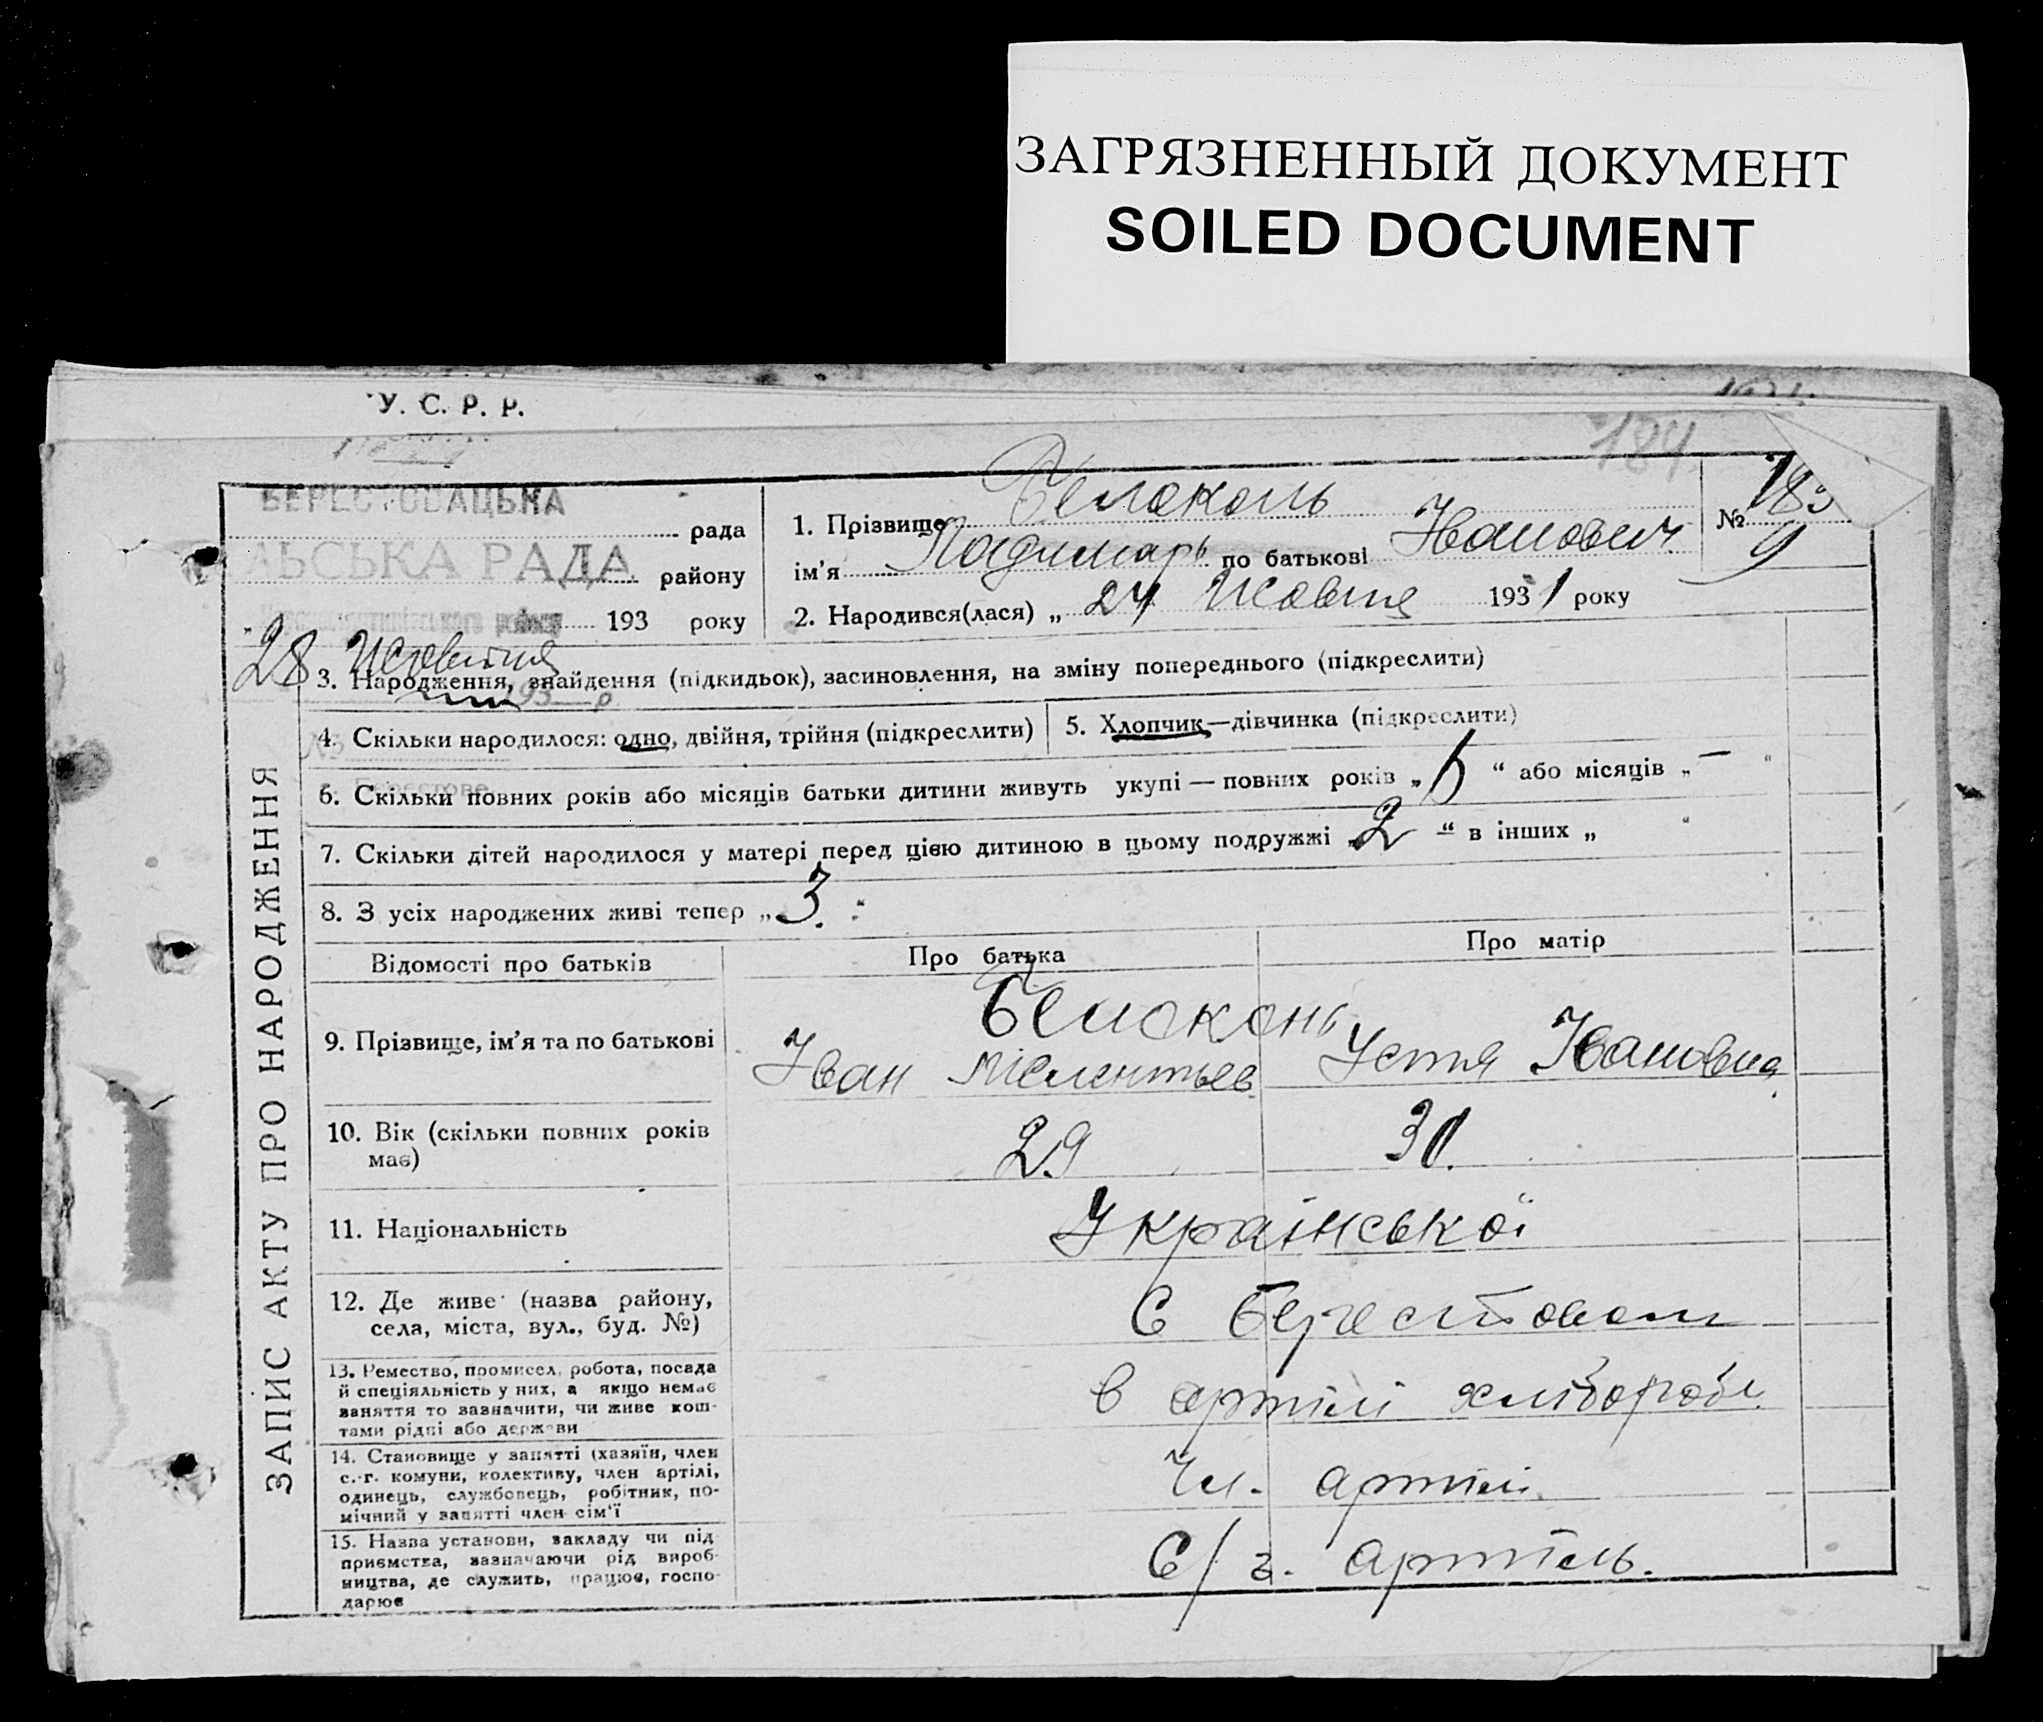 ЗАГРЯЗНЕННЫЙ ДОКУМЕНТ
SOILED DOCUMENT
У. С. Р. Р.
184
БЕРЕСТОВАЦЬКА
рада
ЛЬСЬКА РАДА
району
193 року
28 Жовтня
193 р.
1. Прізвище Белоконь
ім'я по батькові Иванович
№ 183
9
2. Народився(лася) „ 24 Жовтня 1931 року
ЗАПИС АКТУ ПРО НАРОДЖЕННЯ
3. Народження, знайдення (підкидьок), засиновлення, на зміну попереднього (підкреслити)
4. Скільки народилося: одно, двійня, трійня (підкреслити)
5. Хлопчик—дівчинка (підкреслити)
6. Скільки повних років або місяців батьки дитини живуть укупі — повних років „ “ або місяців „ — “
7. Скільки дітей народилося у матері перед цією дитиною в цьому подружжі „ 2 “ в інших „ “
8. З усіх народжених живі тепер „ 3.
Відомості про батьків
Про батька
Про матір
9. Прізвище, ім'я та по батькові
Белоконь
Іван Мелентьев
Устя Івановна
10. Вік (скільки повних років має)
29
30.
11. Національність
Української
12. Де живе (назва району, села, міста, вул., буд. №)
С Берестовом
13. Ремество, промисел, робота, посада й спеціяльність у них, а якщо немає заняття то зазначити, чи живе коштами рідні або держави
в артілі хлібороби
14. Становище у занятті (хазяїн, член с.-г. комуни, колективу, член артілі, одинець, службовець, робітник, помічний у занятті член сім'ї
Чл. артілі
15. Назва установи, закладу чи підприємства, зазначаючи рід виробництва, де служить, працює, господарює
С/г. артіль.